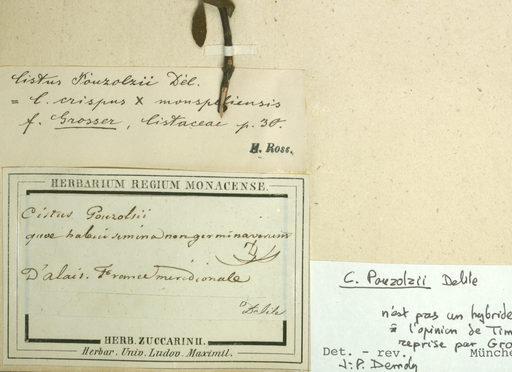 Cistus Pouzolzii Del.
= C. crispus X monspeliensis
f. Grosser, Cistaceae p. 30.
H. Ross.
HERBARIUM REGIUM MONACENSE.
Cistus Pouzolzii
quae habui semina non germinaverunt
D'alais. France meridionale
Delile
HERB. ZUCCARINII.
Herbar. Univ. Ludov. Maximil.
C. Pouzolzii Delile
n'est pas un hybride
l'opinion de Tim
reprise par Gro
Det. - rev. Münche
J.-P. Demoly